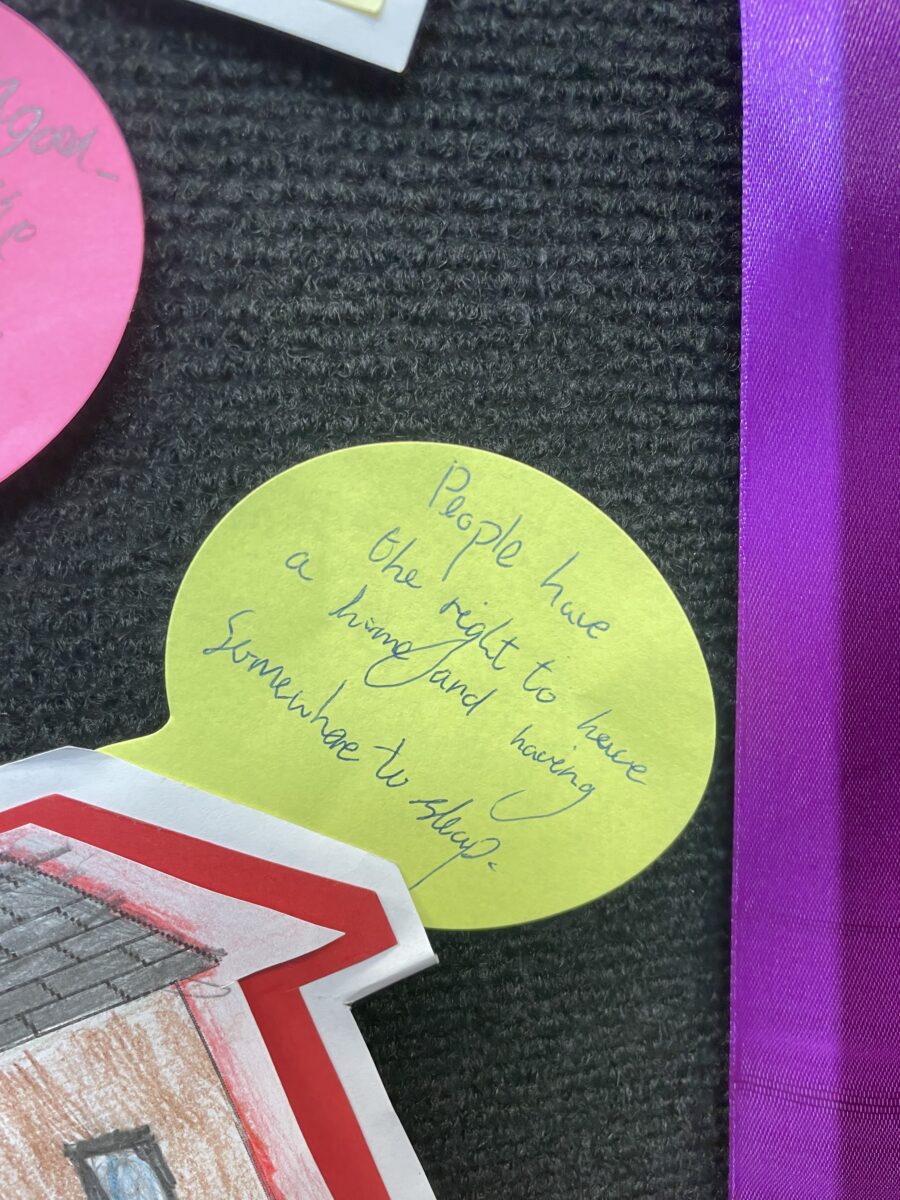 People have
the right to have
a home and having
Somewhere to sleep.